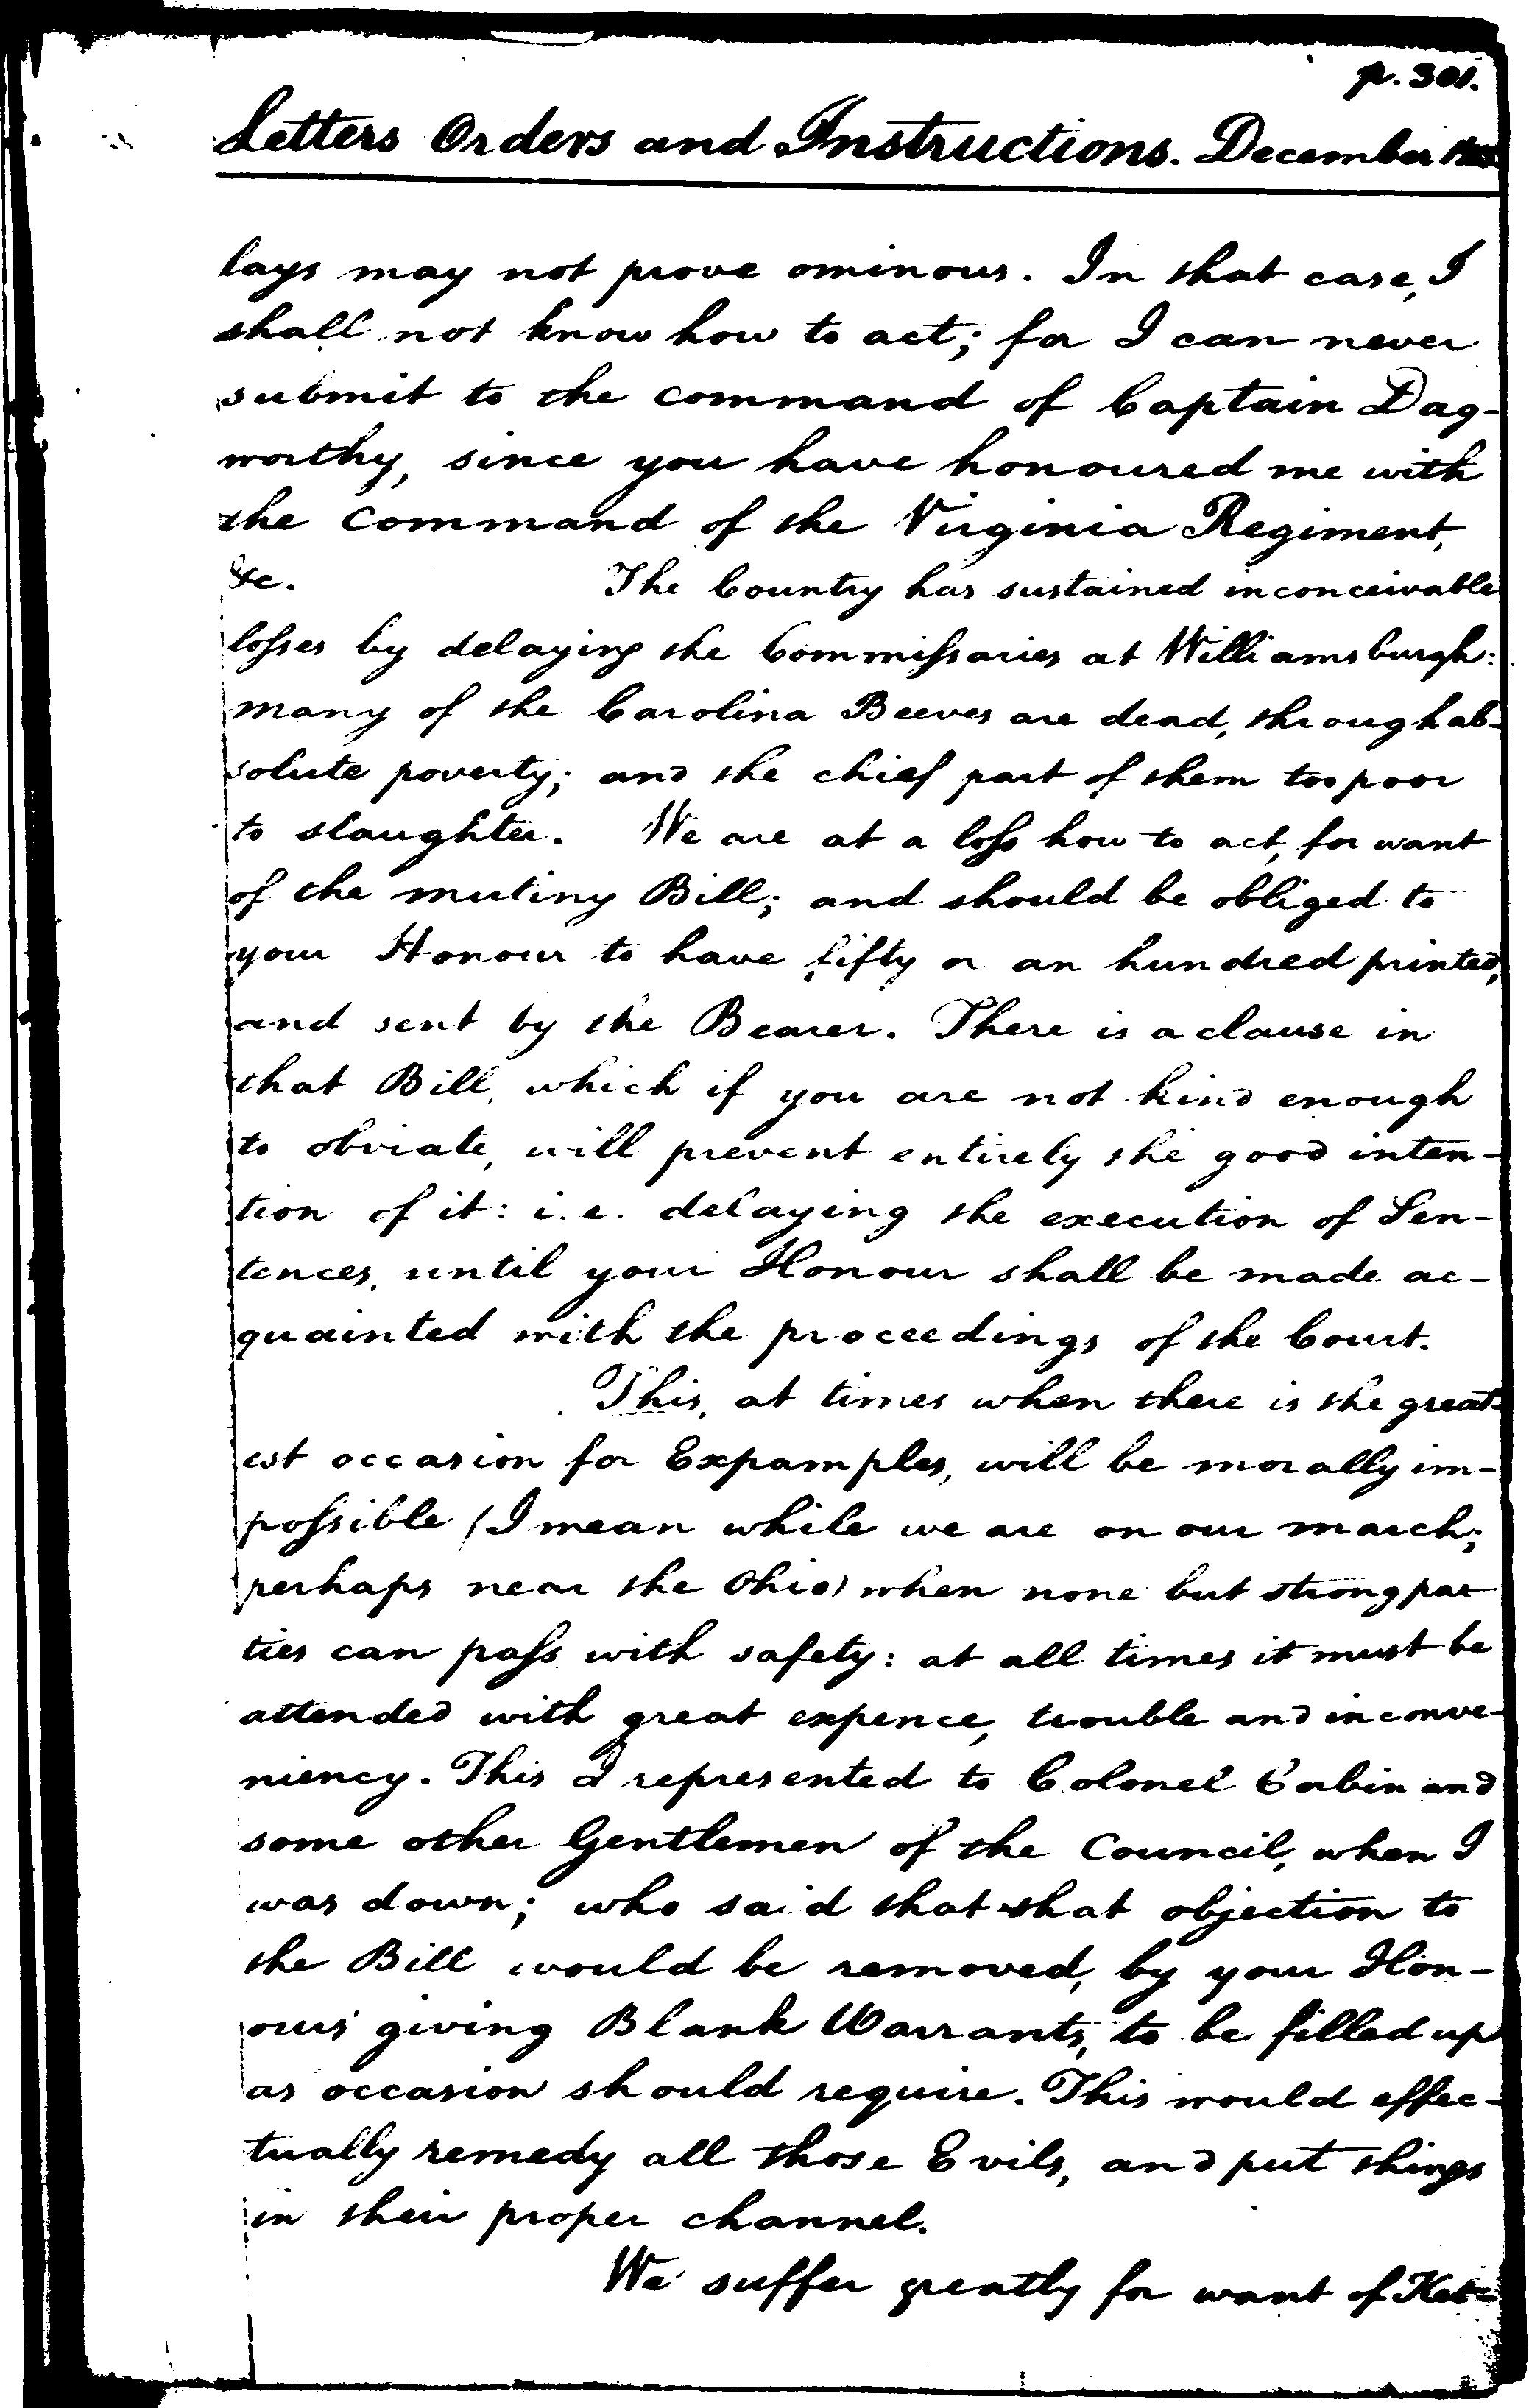 p. 301.
Letters Orders and Instructions. December
lays may not prove ominous. In that case, I
shall not know how to act; for I can never
submit to the command of Captain Dag-
worthy, since you have honoured me with
the command of the Virginia Regiment,
&c. The Country has sustained inconceivable
losses by delaying the Commissaries at Williamsburgh:
many of the Carolina Beeves are dead, through ab-
solute poverty; and the chief part of them too poor
to slaughter. We are at a loss how to act, for want
of the mutiny Bill; and should be obliged to
your Honour to have fifty or an hundred printed,
and sent by the Bearer. There is a clause in
that Bill, which if you are not kind enough
to obviate, will prevent entirely the good inten-
tion of it: i.e. delaying the execution of Sen-
tences, until your Honour shall be made ac-
quainted with the proceedings of the Court.
This, at times when there is the great-
est occasion for Expamples, will be morally im-
possible (I mean while we are on our march;
perhaps near the Ohio) when none but strong par-
ties can pass with safety: at all times it must be
attended with great expence, trouble and inconve-
niency. This I represented to Colonel Corbin and
some other Gentlemen of the Council, when I
was down; who said that that objection to
the Bill would be removed, by your Hon-
ours' giving Blank Warrants, to be filled up
as occasion should require. This would effec-
tually remedy all those Evils, and put things
in their proper channel.
We suffer greatly for want of Ket-